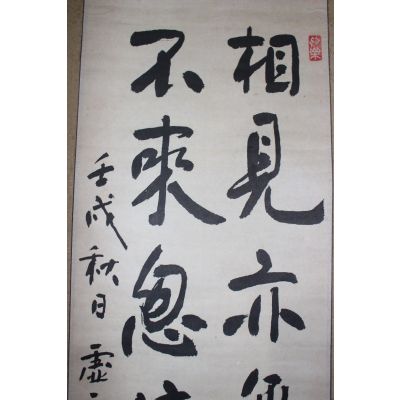 相見亦無
不來忽
壬戌秋日虛